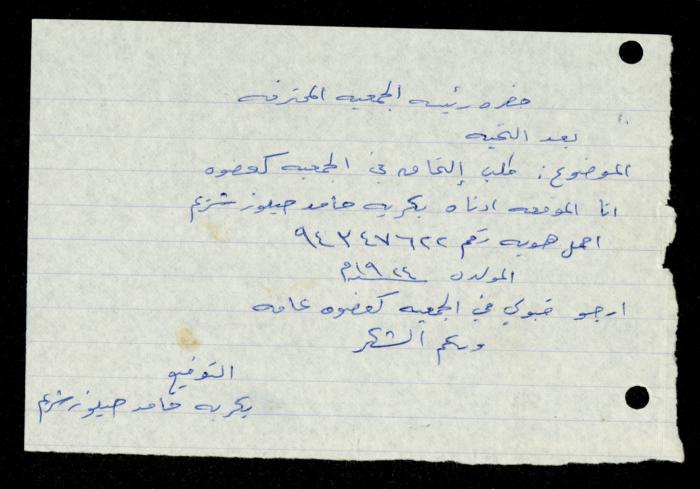 حضره رئيسه الجمعيه المحترمه
بعد التحيه
الموضوع: طلب إلتحاق في الجمعيه كعضوه
انا الموقعه ادناه بكريه حامد شريم
احمل هويه رقم ٩٤٣٤٧٦٢٢
المولده ١٩٢٤م
ارجو قبولي في الجمعيه كعضوه عامه
ولكم الشكر
التوقيع
بكريه حامد شريم